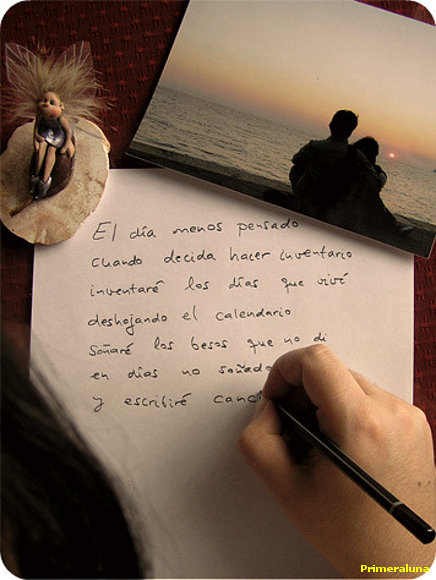 El día menos pensado
cuando decida hacer inventario
inventaré los días que viví
deshojando el calendario
soñaré los besos que no di
en días no soñado
y escribiré canc
Primeraluna